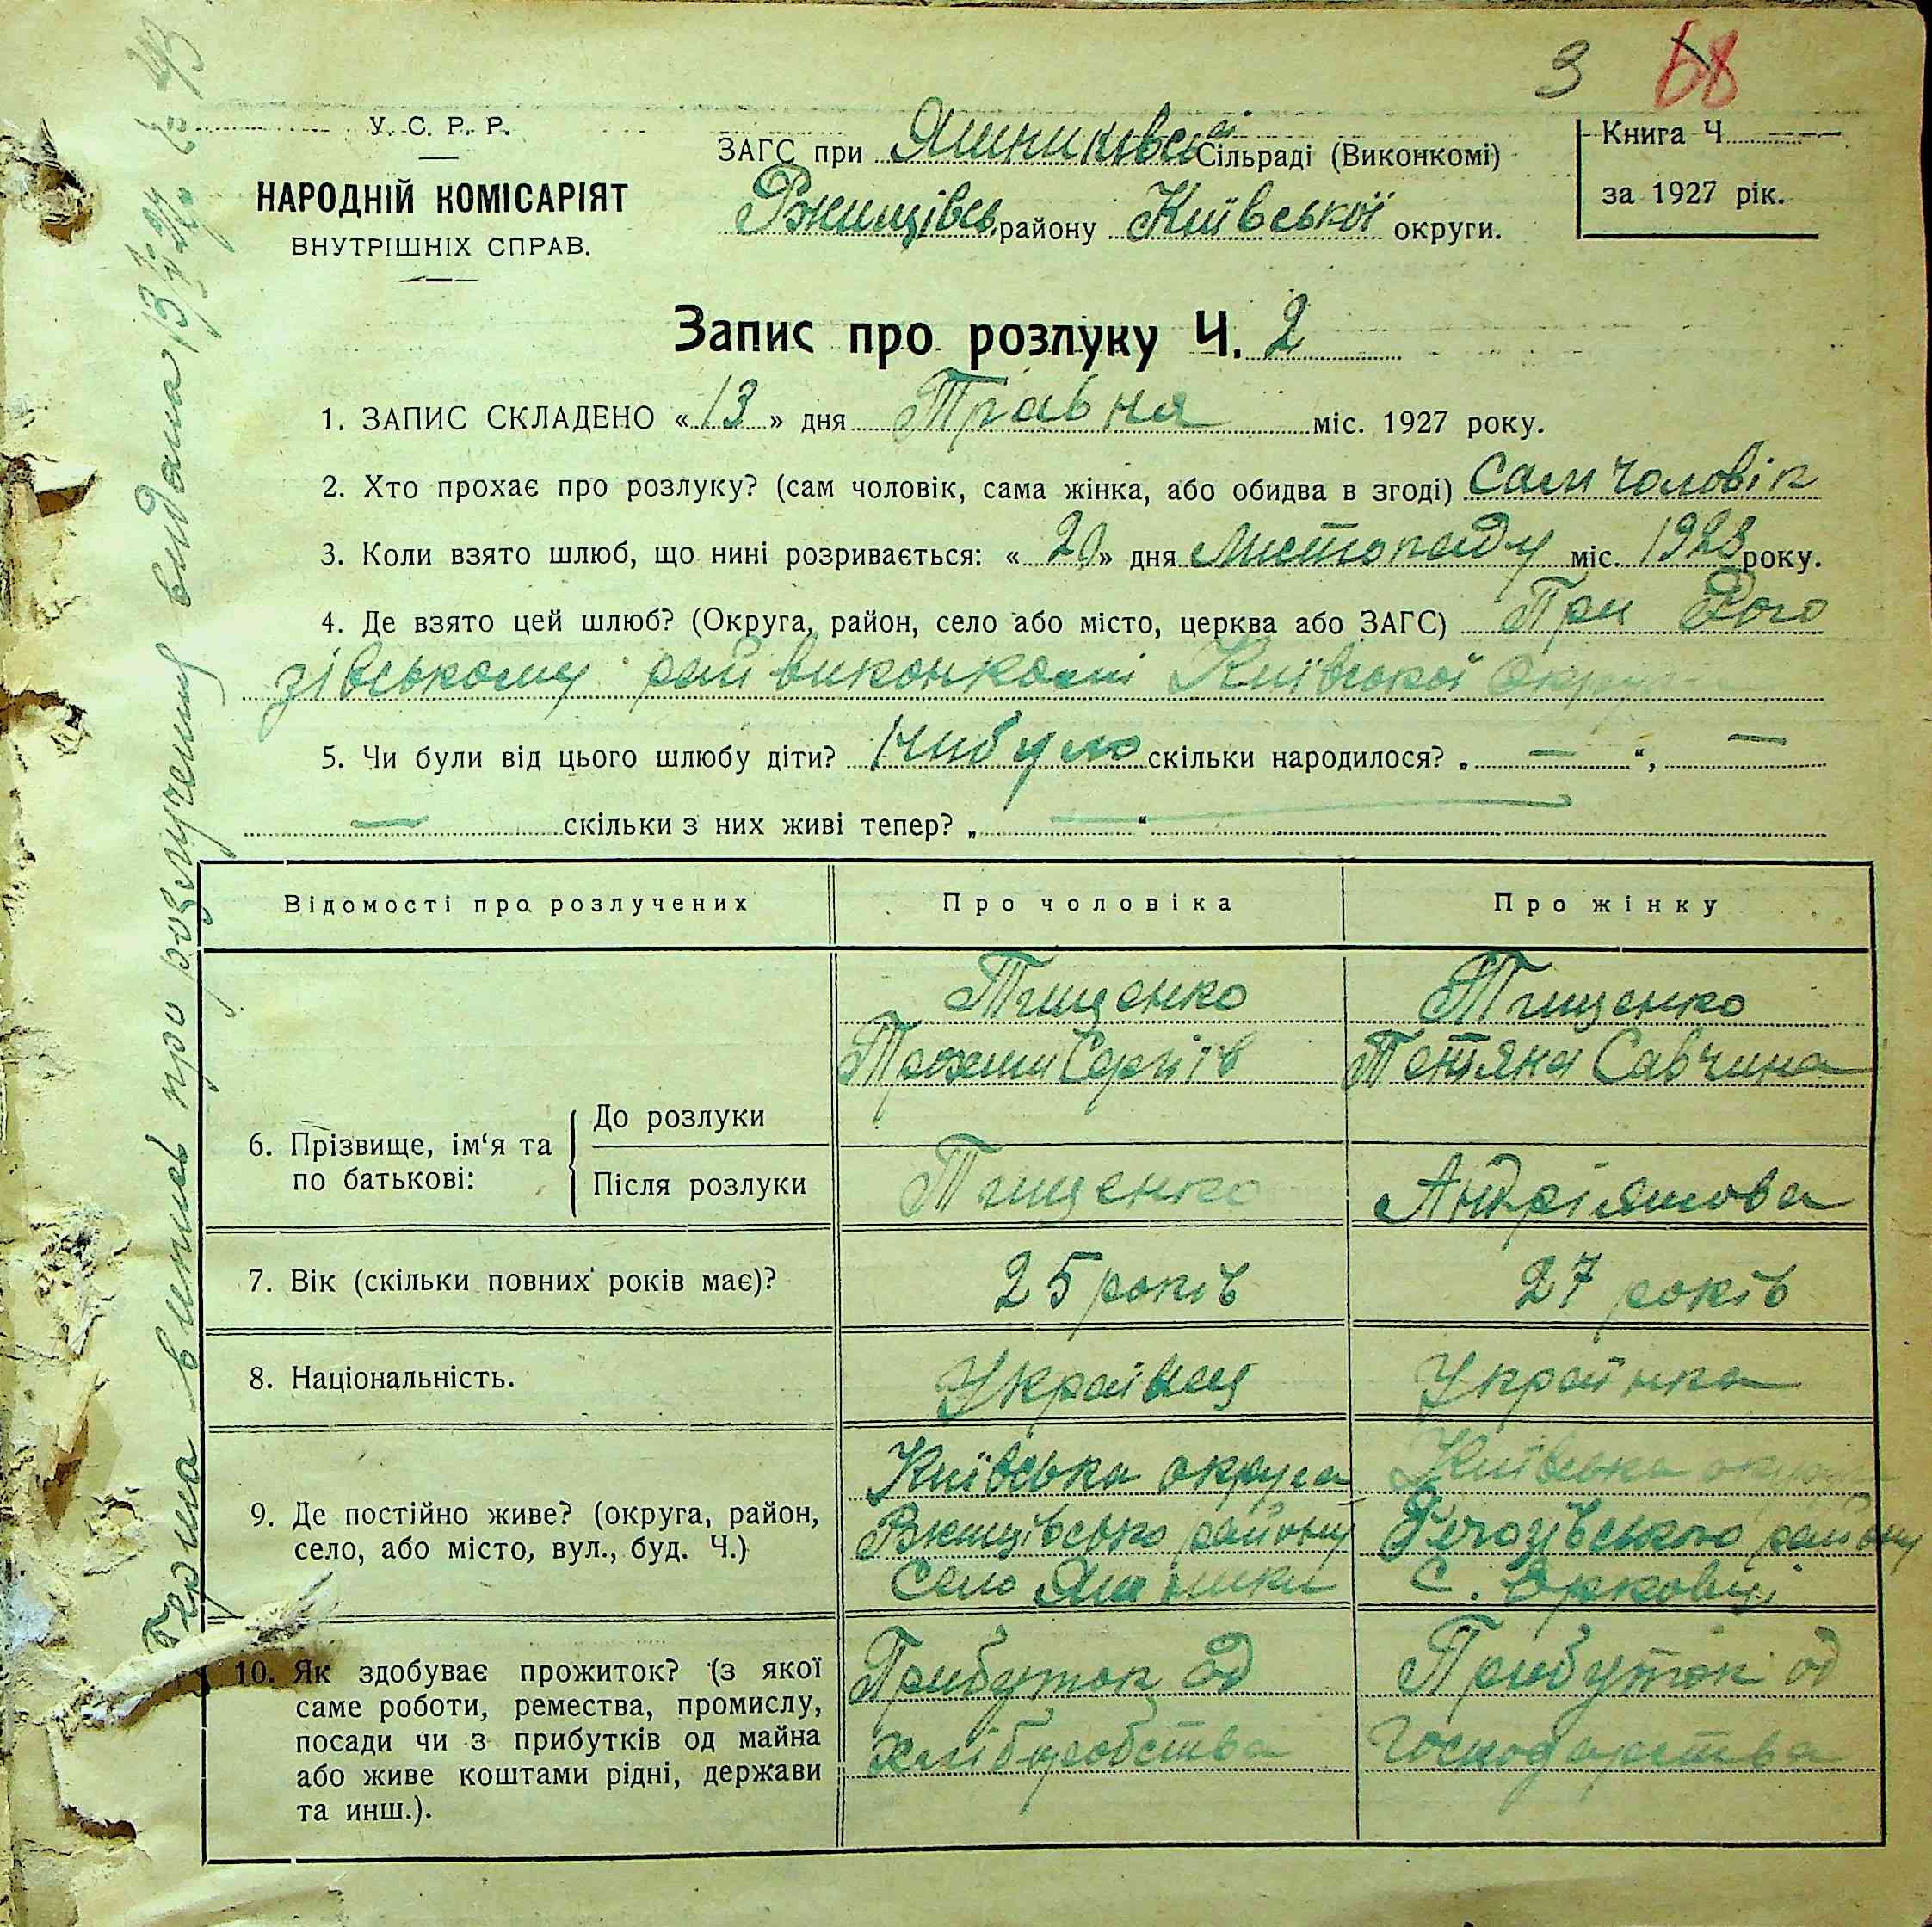 3 68
У. С. Р. Р.
НАРОДНІЙ КОМІСАРІЯТ
ВНУТРІШНІХ СПРАВ.
ЗАГС при Яшниківській Сільраді (Виконкомі)
Ржищівсь. району Київської округи.
Книга Ч.
за 1927 рік.
Запис про розлуку Ч. 2
1. ЗАПИС СКЛАДЕНО «13» дня Травня міс. 1927 року.
2. Хто прохає про розлуку? (сам чоловік, сама жінка, або обидва в згоді) Сам чоловік
3. Коли взято шлюб, що нині розривається: «20» дня листопаду міс. 1923 року.
4. Де взято цей шлюб? (Округа, район, село або місто, церква або ЗАГС) При
зівському райвиконкомі Київської округи
5. Чи були від цього шлюбу діти? Нибуло скільки народилося? „ — “, —
— скільки з них живі тепер? „ — “
Відомості про розлучених
Про чоловіка
Про жінку
6. Прізвище, ім‘я та по батькові:
До розлуки
Тищенко
Сергіїв
Тищенко
Тетяна Савчина
Після розлуки
Тищенко
Андріяшова
7. Вік (скільки повних років має)?
25 років
27 років
8. Національність.
Українец
Українка
9. Де постійно живе? (округа, район,
село, або місто, вул., буд. Ч.)
Київська округа
Ржищівсько району
Село Яшники
Київська округа
району
С. Єрковці
10. Як здобуває прожиток? (з якої
саме роботи, ремества, промислу,
посади чи з прибутків од майна
або живе коштами рідні, держави
та инш.).
Прибуток од
хліборобства
Прибуток од
господарства
випись про розлучення видана 13